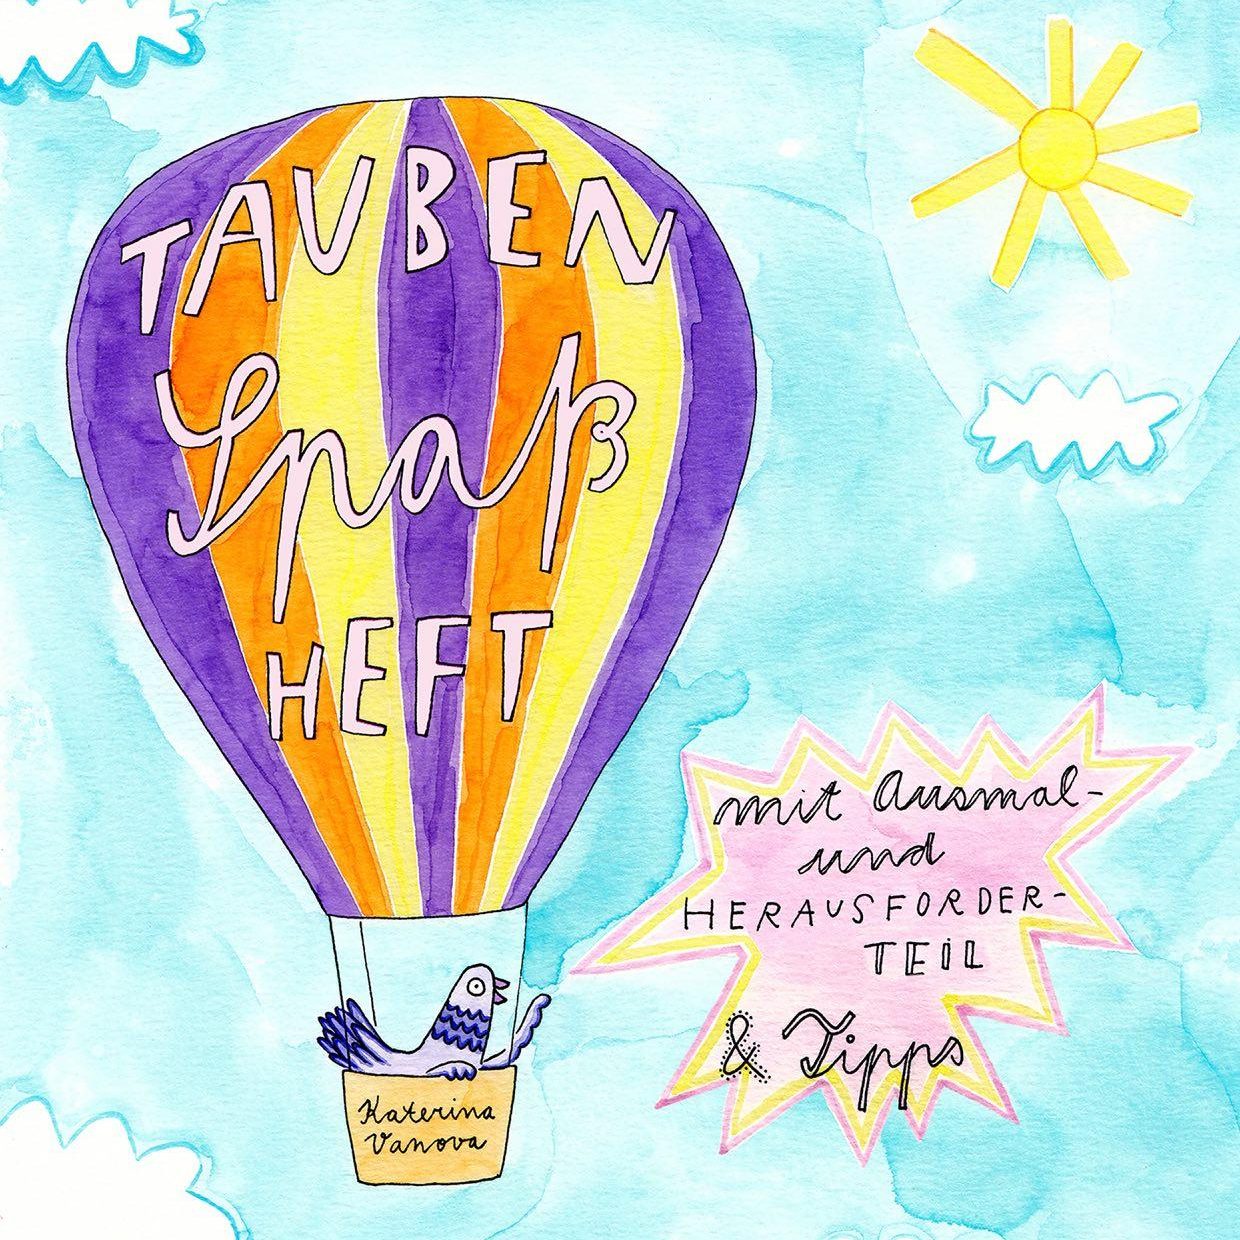 TAUBEN
Spaß
HEFT
mit Ausmal-
und
HERAUSFORDER-
TEIL
& Tipps
Katerina
Vanova